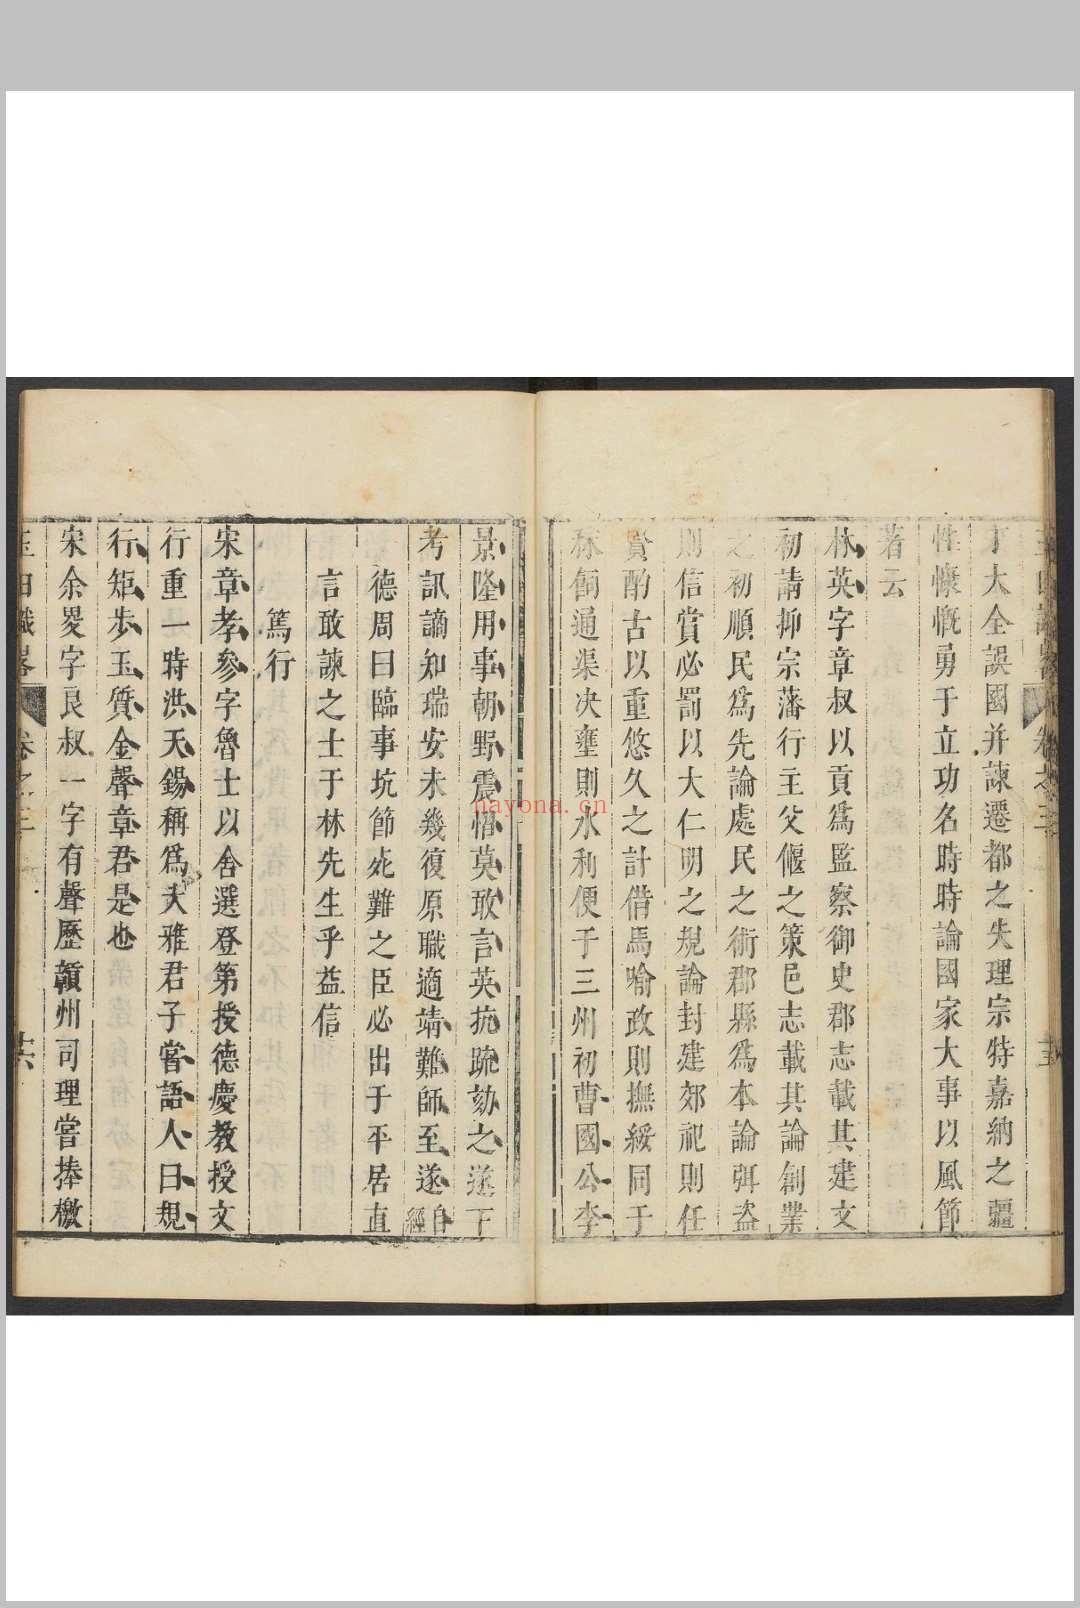 玉田識畧 卷之三 十五
丁大全誤國并諫遷都之失理宗特嘉納之疆
性慷慨勇于立功名時時論國家大事以風節
著云
林英字章叔以貢爲監察御史郡志載其建文
初請抑宗藩行主父偃之策邑志載其論創業
之初順民爲先論處民之術郡縣爲本論弭盜
則信賞必罰以大仁明之規論封建郊祀則任
賞酌古以重悠久之計借馬喻政則撫綏同于
秣飼通渠决壅則水利便于三州初曹國公李
景隆用事朝野震慴莫敢言英抗疏劾之遂下
考訊謫知瑞安未幾復原職適靖難師至遂自經
德周曰臨事抗節死難之臣必出于平居直
言敢諫之士于林先生乎益信
篤行
宋章孝參字魯士以舍選登第授德慶教授文
行重一時洪天錫稱爲大雅君子嘗語人曰規
行矩步玉質金聲章君是也
宋余㚟字良叔一字有聲歷贛州司理嘗捧檄
玉田識畧 卷之三 十六
nayona.cn